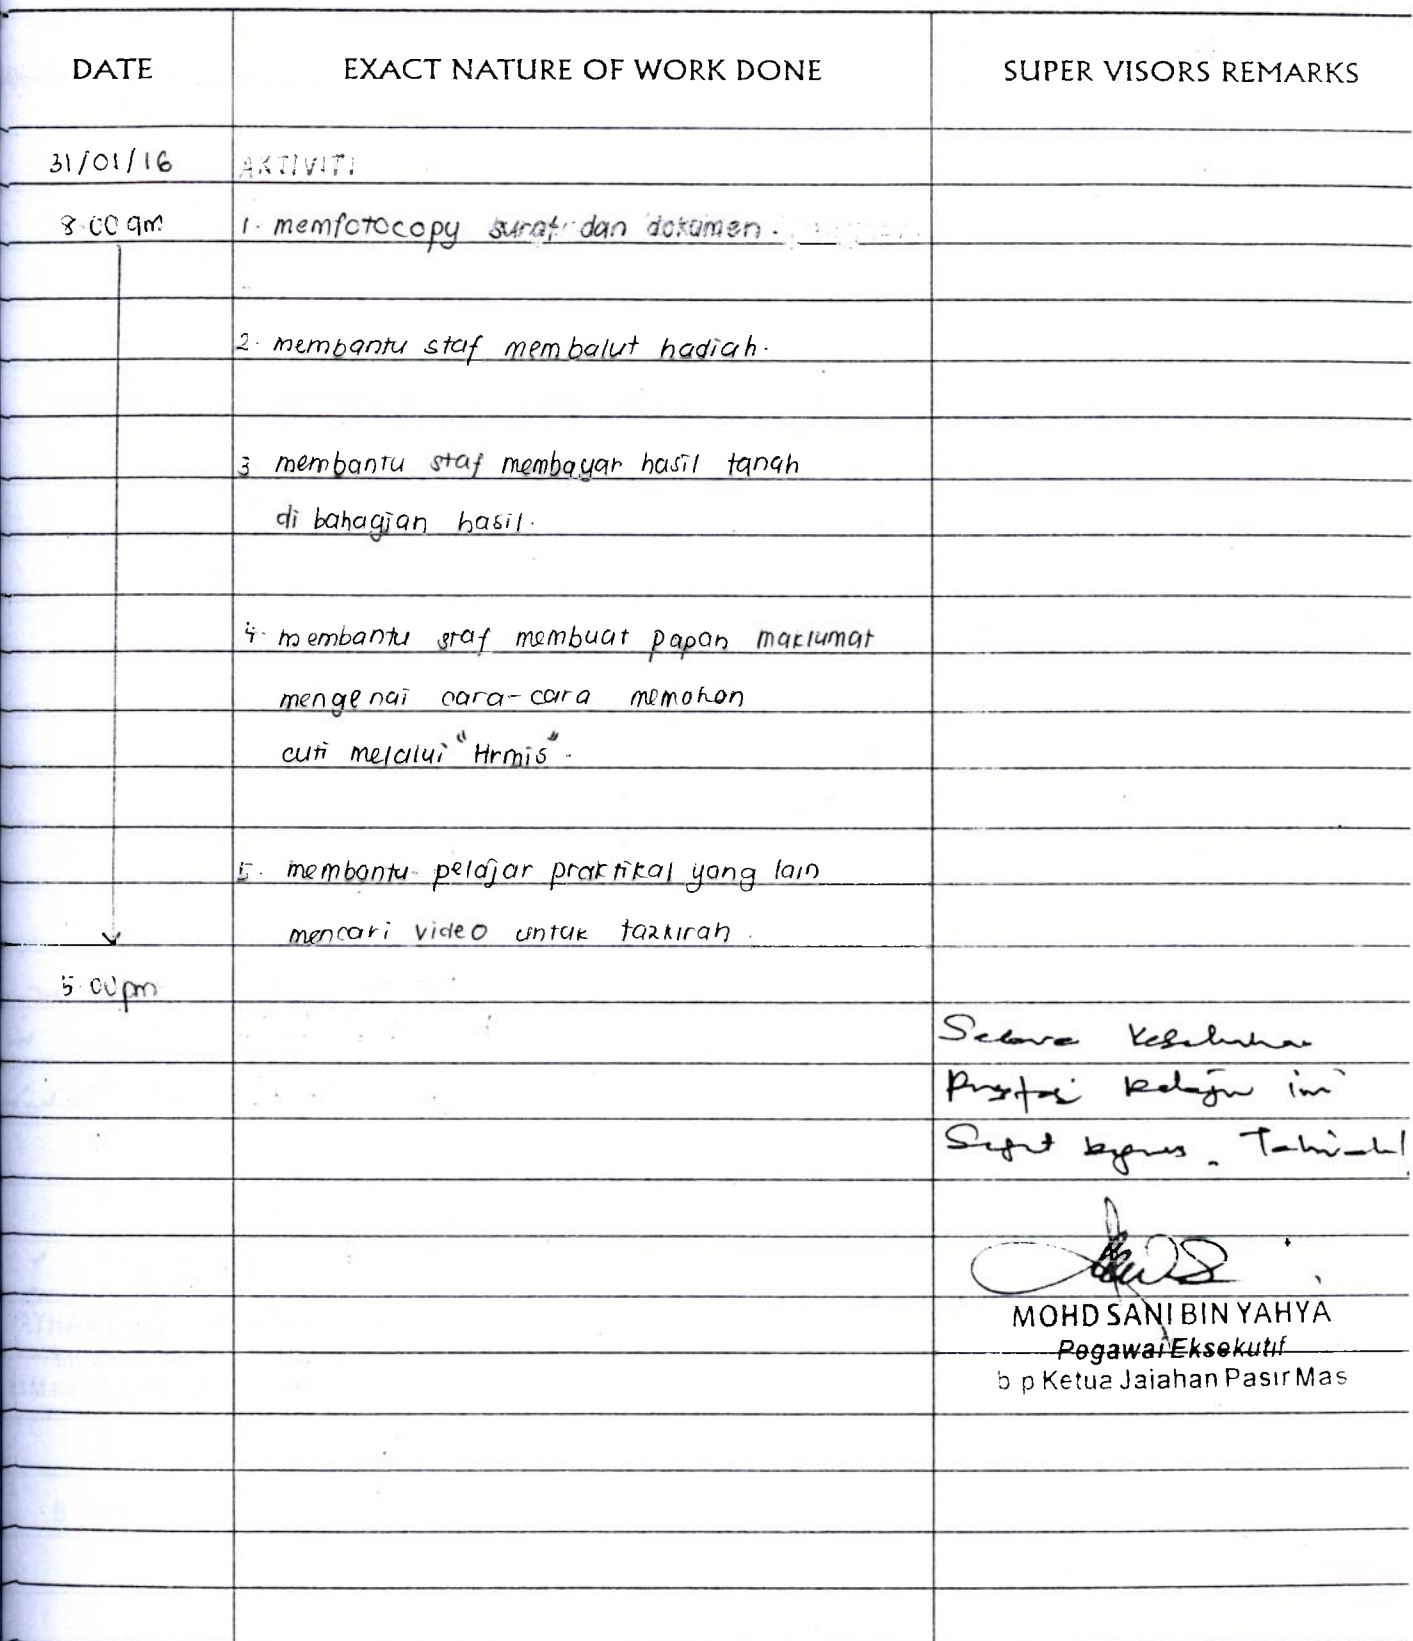 DATE EXACT NATURE OF WORK DONE SUPER VISORS REMARKS
31/01/16 AKTIVITI
8.00 am 1. memfotocopy surat dan dokumen.
2. membantu staf membalut hadiah.
3 membantu staf membayar hasil tanah
di bahagian hasil.
4. membantu staf membuat papan maklumat
mengenai cara-cara memohon
cuti melalui "Hrmis".
5. membantu pelajar praktikal yang lain
mencari video untuk tazkirah.
5.00pm
Secara keseluruhan
Prestasi pelajar ini
Sangat bagus. Tahniah!
MOHD SANI BIN YAHYA
Pegawai Eksekutif
b p Ketua Jajahan Pasir Mas